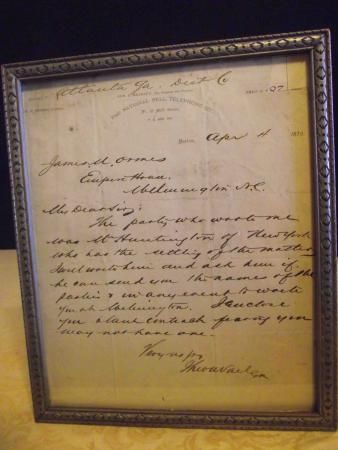 Atlanta Ga, Dist C
THE NATIONAL BELL TELEPHONE
Boston, Apr 4 187
James M. Ormes
Empire House
Wilmington N.C.
My Dear Sir,
The party who wrote me
was Mr Huntington of New York
who has the settling of the matter
I will write him and ask him if
he can send you the names of the
parties & in any event to write
you at Wilmington. I enclose
you a blank contract fearing you
may not have one.
Very resp
Theo N Vail